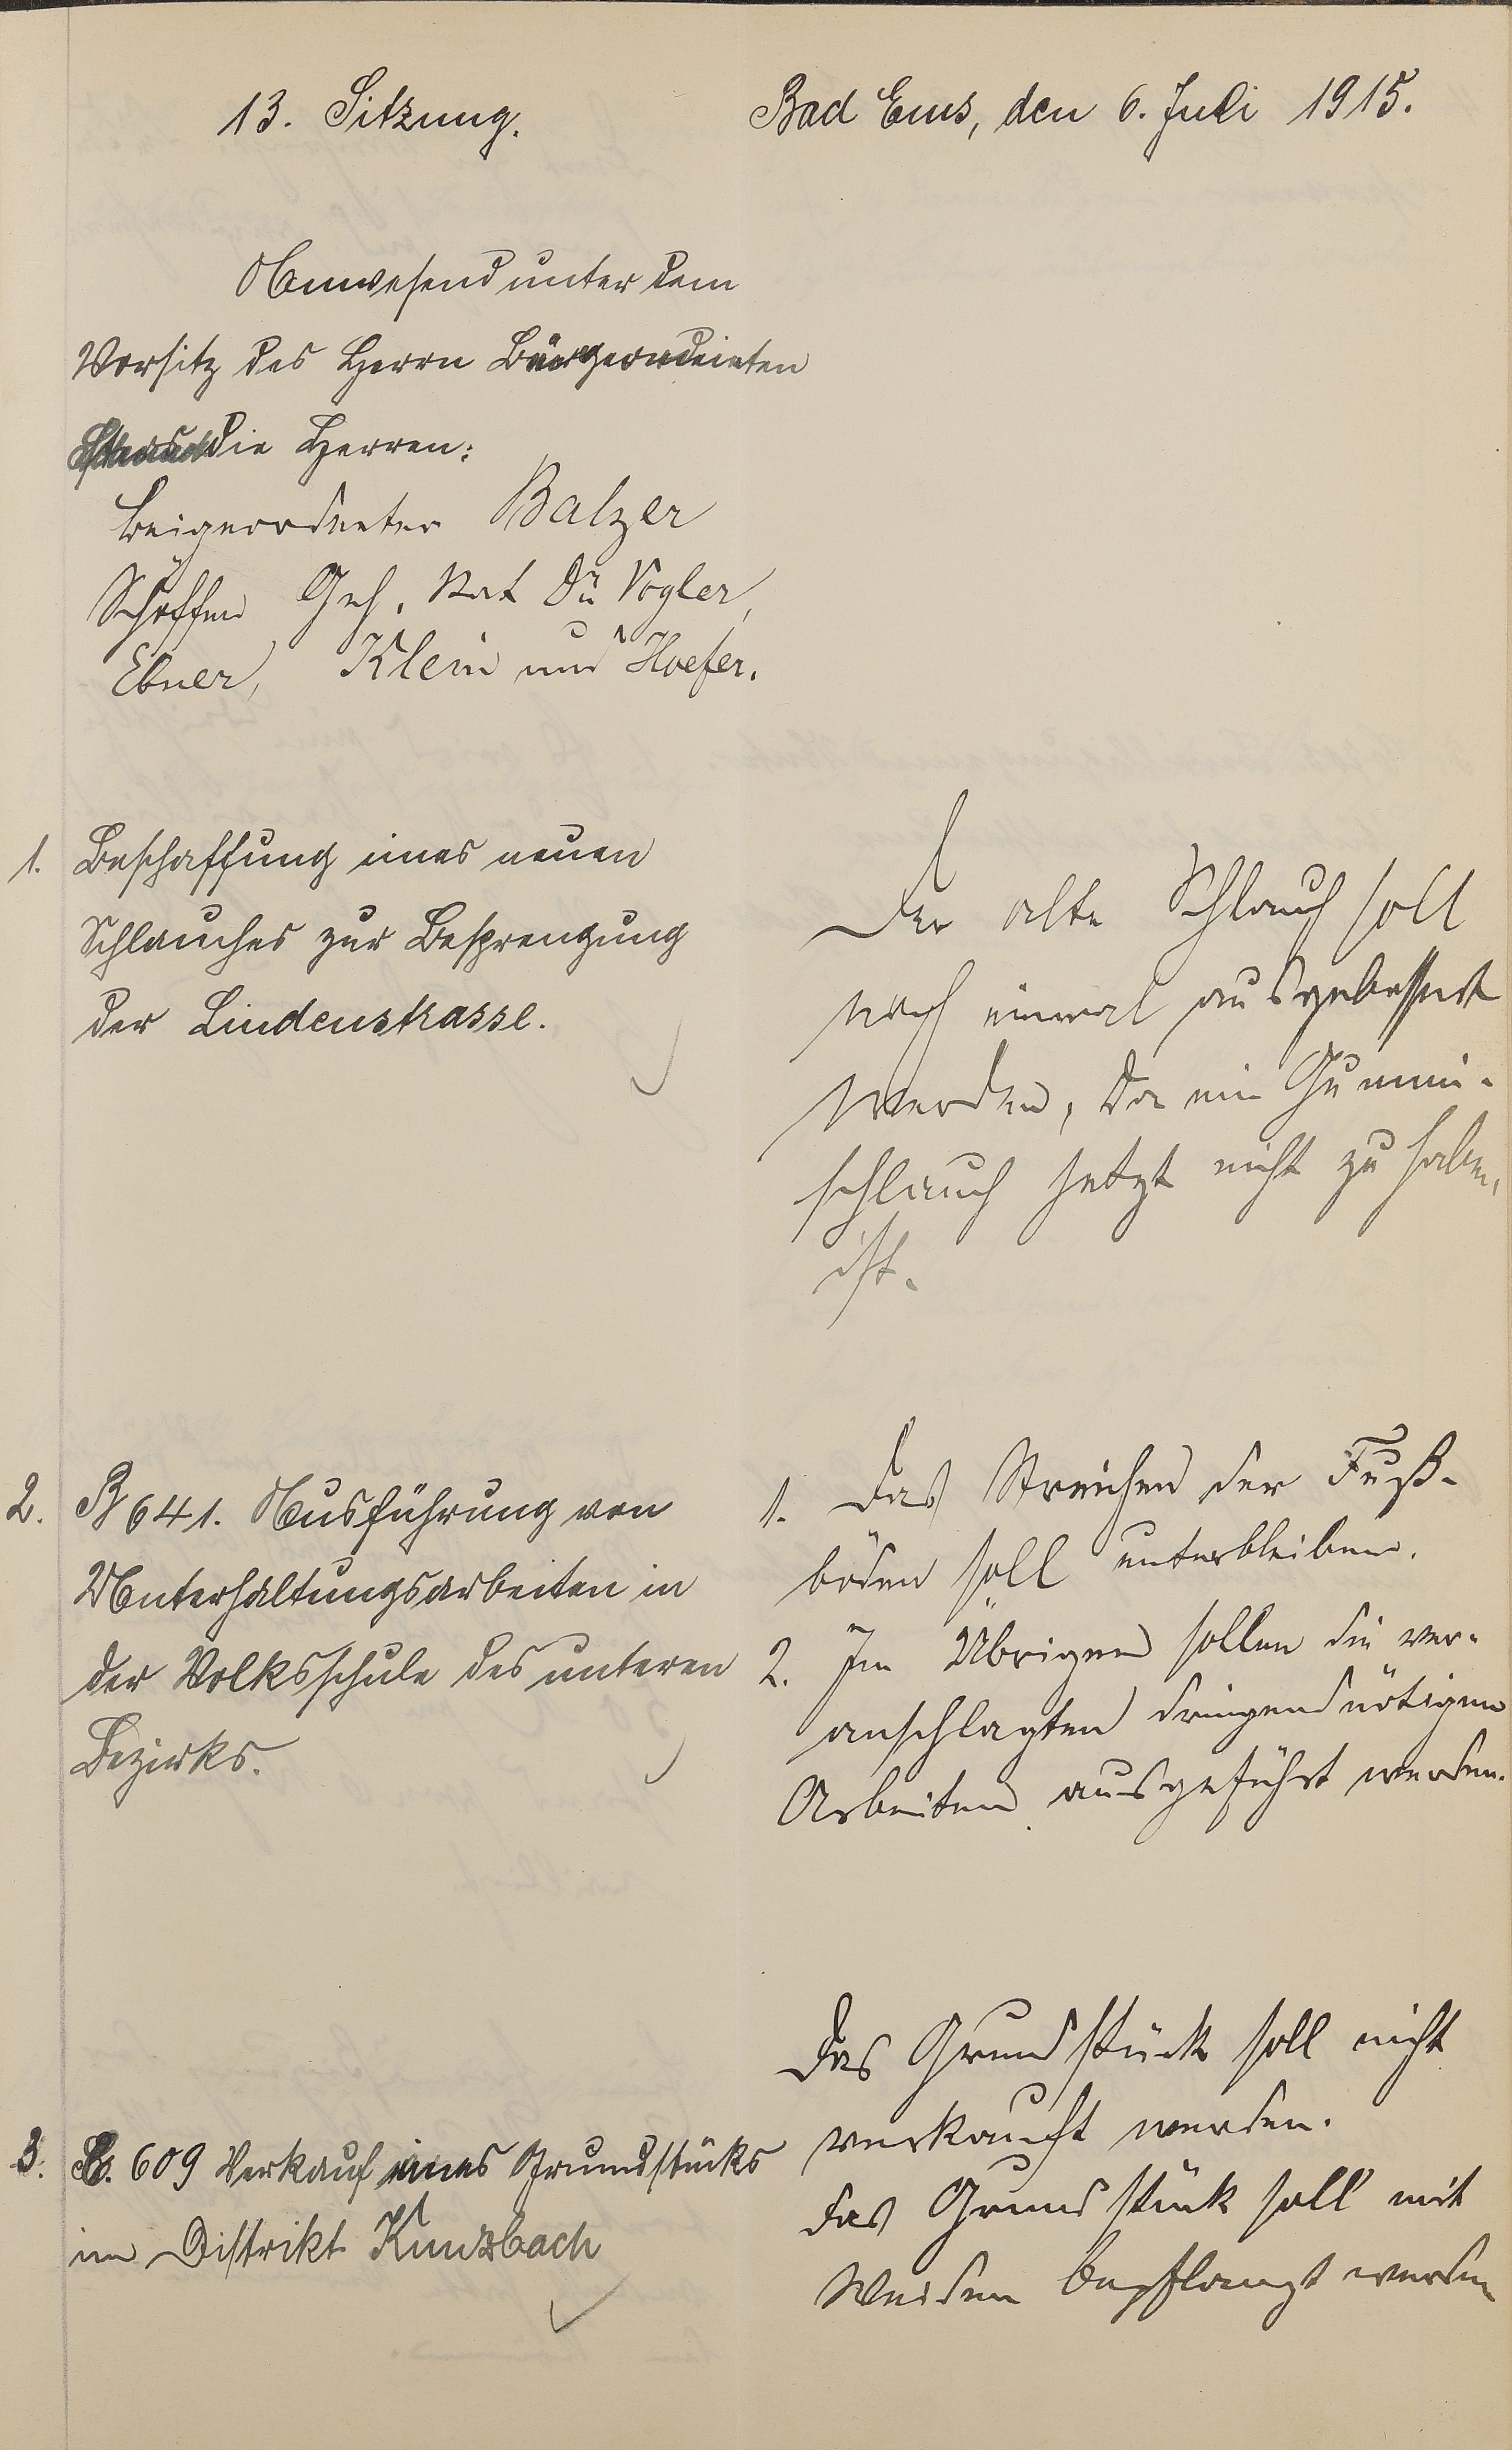 13. Sitzung.
Bad Ems, den 6. Juli 1915.
Anwesend unter dem
Vorsitz des Herrn
die Herren:
Beigeordneter Balzer
Schöffen Geh. Rat Dr. Vogler,
Ebner, Klein und Hoefer.
1. Beschaffung eines neuen
Schlauches zur Besprengung
der Lindenstrasse.
Der alte Schlauch soll
noch einmal ausgebessert
werden, da ein Gummi-
schlauch jetzt nicht zu haben
ist.
2. B 641. Ausführung von
Unterhaltungsarbeiten in
der Volksschule des unteren
Bezirks.
1. Das Streichen der Fuß-
böden soll unterbleiben.
2. Im Übrigen sollen die ver-
anschlagten dringend nötigen
Arbeiten ausgeführt werden.
3. B. 609 Verkauf eines Grundstücks
im Distrikt Kunzbach
Das Grundstück soll nicht
verkauft werden.
Das Grundstück soll mit
Weiden bepflanzt werden